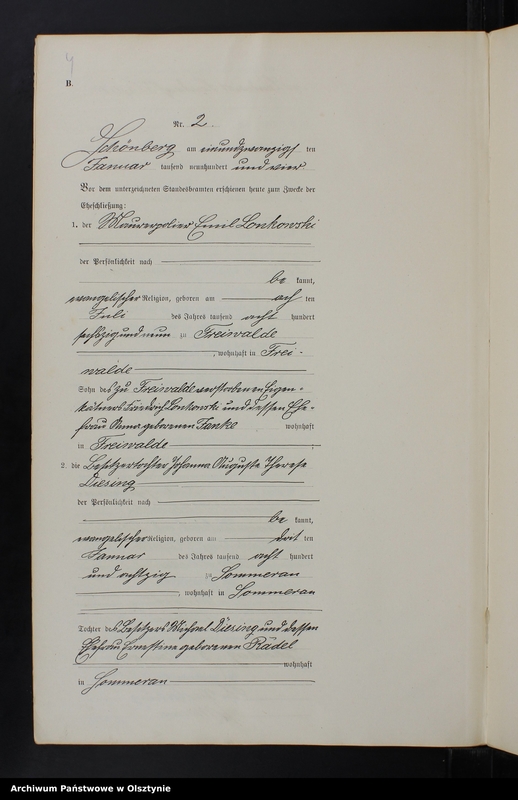 4
B.
Nr. 2.
Schönberg am einundzwanzigsten
Januar tausend neunhundert und vier
Vor dem unterzeichneten Standesbeamten erschienen heute zum Zwecke der
Eheschließung:
1. der Maurerpolier Emil Lonkowski
der Persönlichkeit nach
be kannt,
evangelischer Religion, geboren am ach ten
Juli des Jahres tausend acht hundert
sechszig und neun zu Freiwalde
, wohnhaft in Frei-
walde
Sohn des zu Freiwalde verstorbenen Eigen-
käthners Friedrich Lonkowski und dessen Ehe-
frau Anna geborenen Janke wohnhaft
in Freiwalde ;
2. die Besitzertochter Johanna Auguste Therese
Diesing
der Persönlichkeit nach
be kannt,
evangelischer Religion, geboren am drit ten
Januar des Jahres tausend acht hundert
und achtzig zu Sommerau
, wohnhaft in Sommerau
Tochter des Besitzers Michael Diesing und dessen
Ehefrau Ernestine geborenen Rädel
wohnhaft
in Sommerau
Archiwum Państwowe w Olsztynie